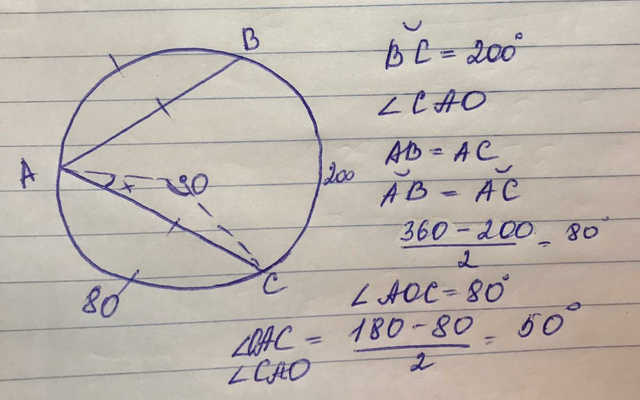 B
A
O
200
C
80
x
B͝C = 200°
∠CAO
AB = AC
A͝B = A͝C
(360 - 200)/2 = 80°
∠AOC = 80°
∠OAC = (180 - 80)/2 = 50°
∠CAO